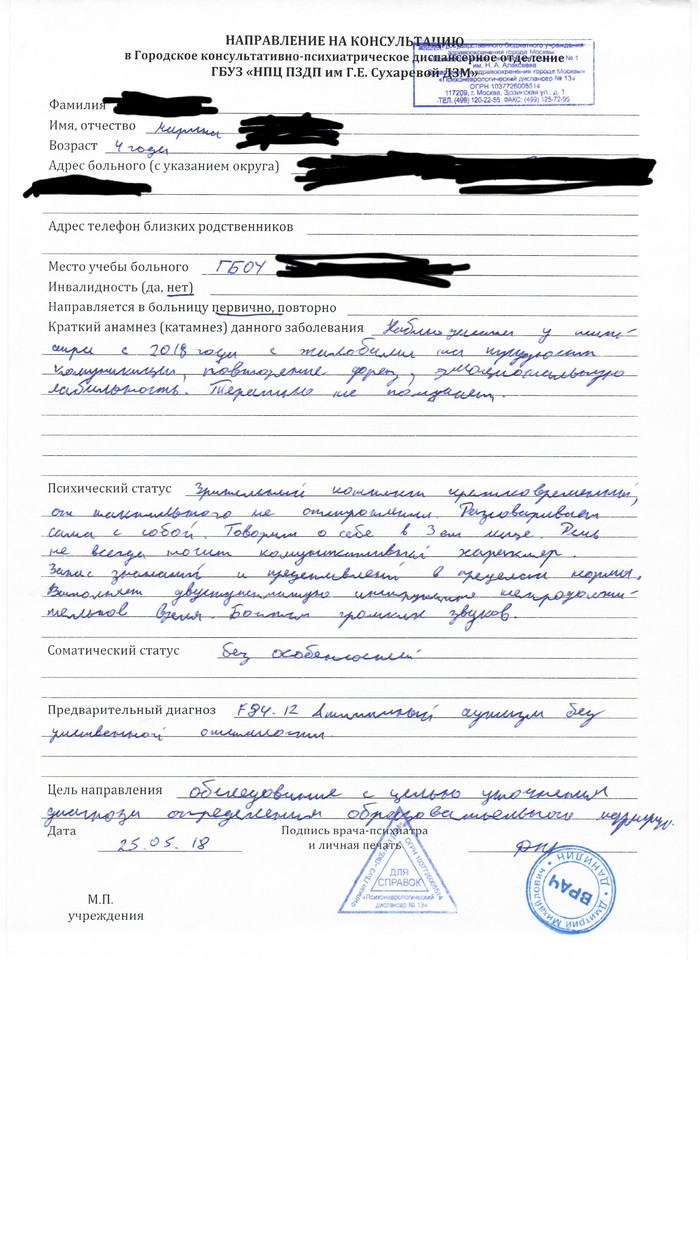 НАПРАВЛЕНИЕ НА КОНСУЛЬТАЦИЮ
в Городское консультативно-психиатрическое диспансерное отделение
ГБУЗ «НПЦ ПЗДП им Г.Е. Сухаревой ДЗМ»
государственного бюджетного учреждения
здравоохранения города Москвы
№ 1
им. Н. А. Алексеева
здравоохранения города Москвы»
«Психоневрологический диспансер № 13»
ОГРН 1037725005514
117209, г. Москва, ул., д. 1
ТЕЛ. (499) 120-22-55 ФАКС: (499) 125-72-95
Фамилия
Имя, отчество
Возраст 4 года
Адрес больного (с указанием округа)
Адрес телефон близких родственников
Место учебы больного ГБОУ
Инвалидность (да, нет)
Направляется в больницу первично, повторно
Краткий анамнез (катамнез) данного заболевания Наблюдается у
с 2018 года с жалобами на трудности
коммуникации, повторение фраз, эмоциональную
лабильность. Терапию не получает.
Психический статус Зрительный контакт кратковременный,
от тактильного не Разговаривает
сама с собой. Говорит о себе в 3 ем лице. Речь
не всегда носит коммуникативный характер.
Запас знаний и представлений в пределах нормы.
Выполняет двухступенчатую инструкцию непродолжи-
тельное время. Боится громких звуков.
Соматический статус без особенностей
Предварительный диагноз F84.12 Атипичный аутизм без
умственной отсталости.
Цель направления обследование с целью уточнения
диагноза определения образовательного маршрута.
Дата 25.05.18 Подпись врача-психиатра
и личная печать
ДЛЯ
СПРАВОК
«Психоневрологический
диспансер № 13»
ДАНИЛИН • Дмитрий Михайлович
ВРАЧ
М.П.
учреждения